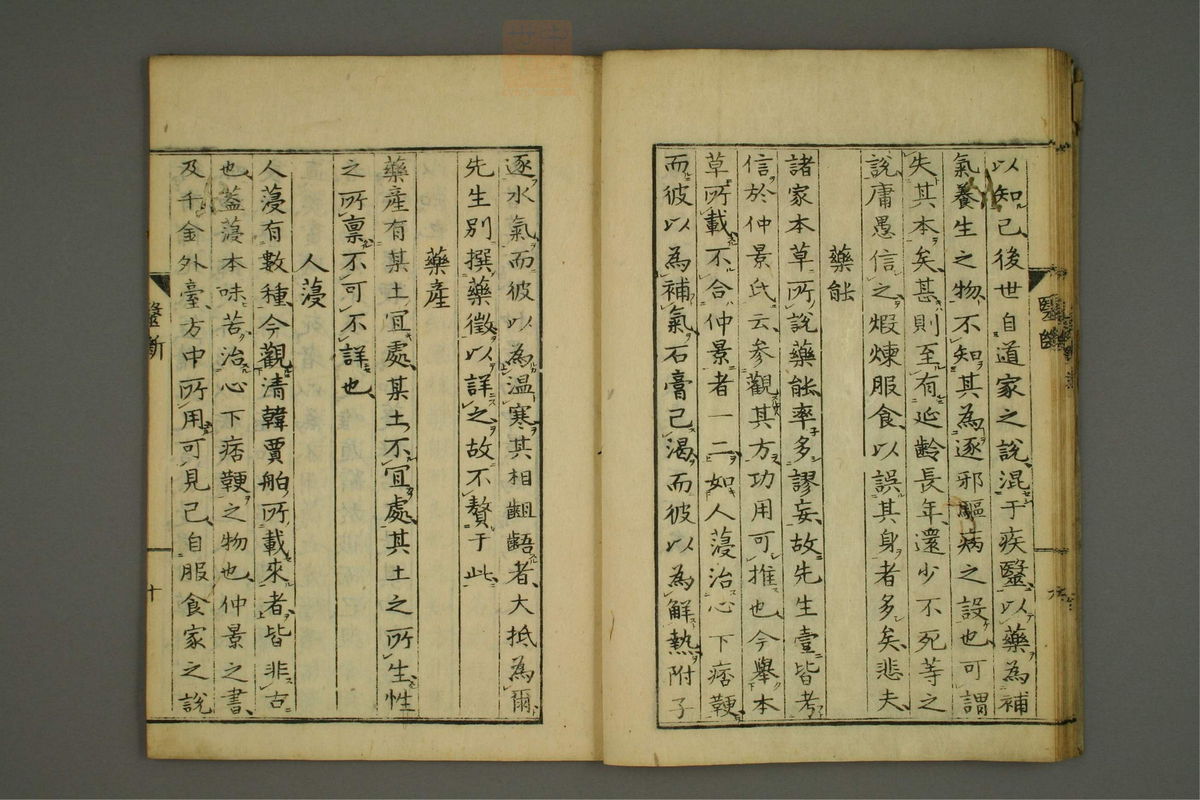 以知已後世自道家之說混于疾毉以藥為補
氣養生之物不知其為逐邪驅病之設也可謂
失其本矣甚則至有延齡長年還少不死等之
說庸愚信之煆煉服食以誤其身者多矣悲夫
藥能
諸家本草所說藥能率多謬妄故先生壹皆考
信於仲景氏云参觀其方功用可推也今舉本
草所載不合仲景者一二如人葠治心下痞鞕
而彼以為補氣石膏已渴而彼以為解熱附子
毉斷
逐水氣而彼以為温寒其相齟齬者大抵為爾
先生別撰藥徵以詳之故不贅于此
藥產
藥產有某土宜處某土不宜處其土之所生性
之所稟不可不詳也
人葠
人葠有數種今觀清韓賈舶所載來者皆非古
也蓋葠本味苦治心下痞鞕之物也仲景之書
及千金外臺方中所用可見已自服食家之說
毉斷
十